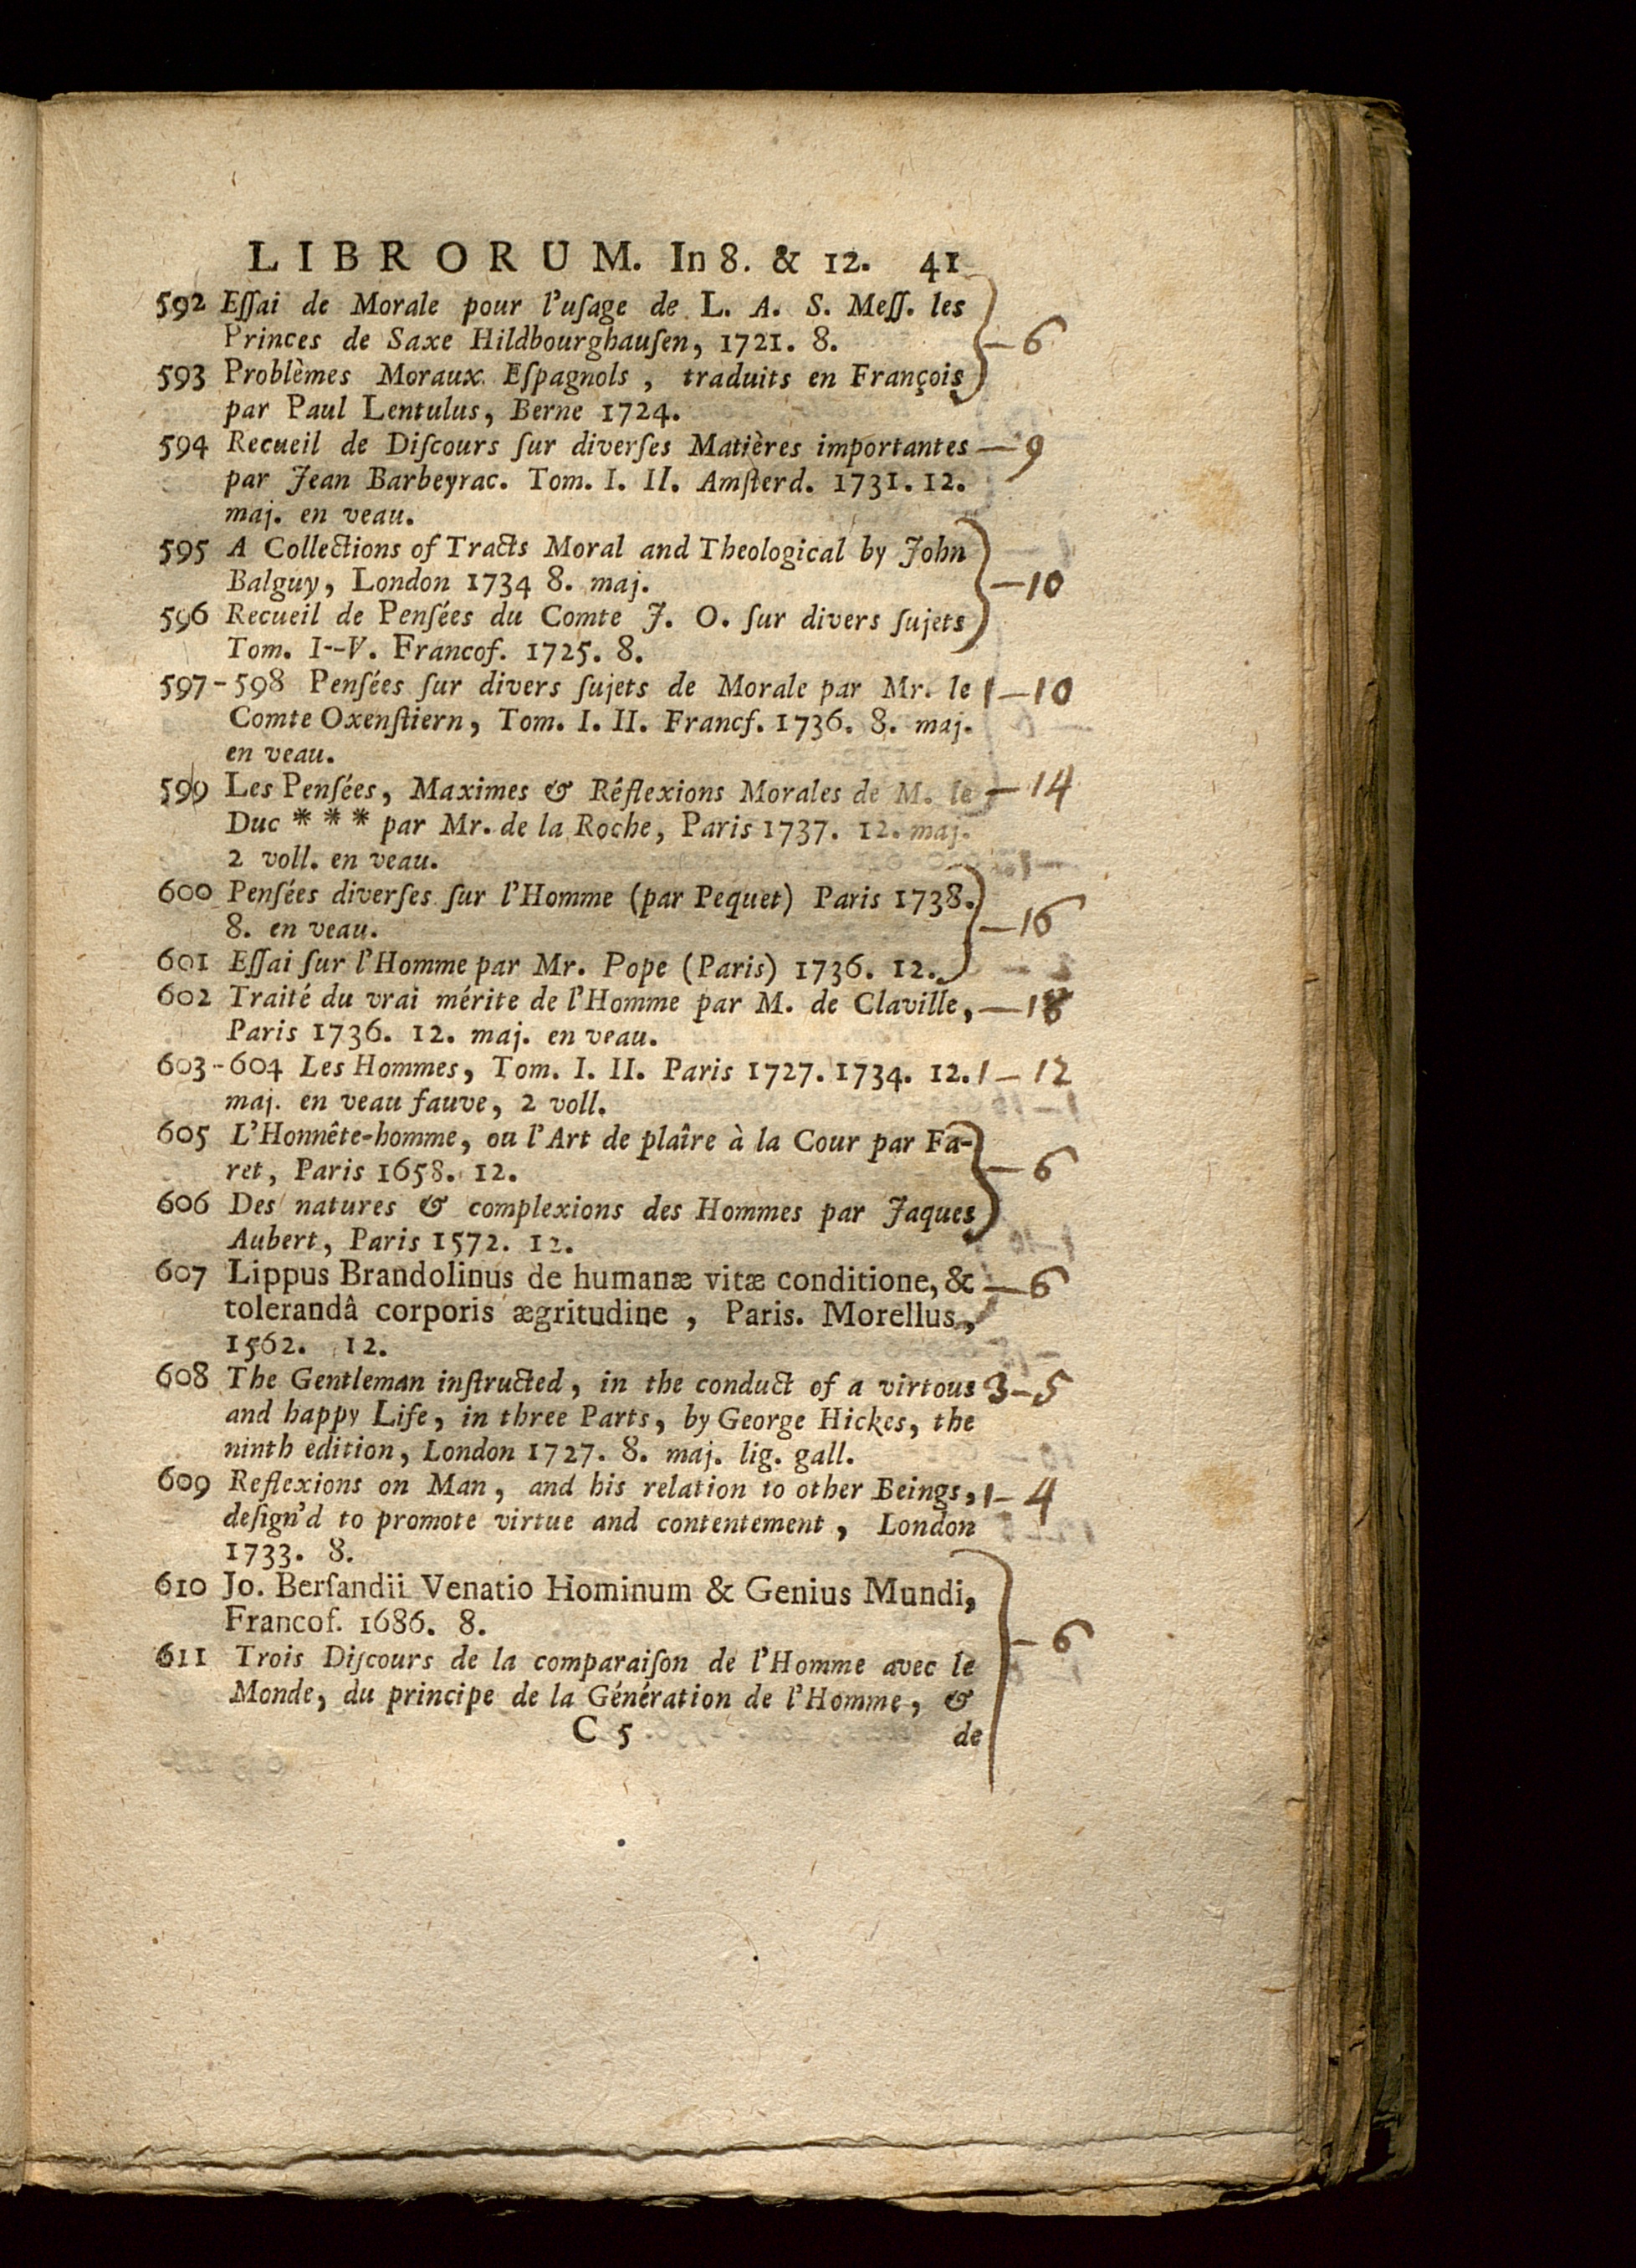 LIBRORUM. In 8. & 12. 41
592 Eſſai de Morale pour l'uſage de L. A. S. Meſſ. les
Princes de Saxe Hildbourghauſen, 1721. 8. — 6
593 Problèmes Moraux Eſpagnols, traduits en François
par Paul Lentulus, Berne 1724.
594 Recueil de Diſcours ſur diverſes Matières importantes — 9
par Jean Barbeyrac. Tom. I. II. Amſterd. 1731. 12.
maj. en veau.
595 A Collections of Tracts Moral and Theological by John
Balguy, London 1734 8. maj. — 10
596 Recueil de Penſées du Comte J. O. ſur divers ſujets
Tom. I--V. Francof. 1725. 8.
597-598 Penſées ſur divers ſujets de Morale par Mr. le 1 — 10
Comte Oxenſtiern, Tom. I. II. Francf. 1736. 8. maj.
en veau.
599 Les Penſées, Maximes & Réflexions Morales de M. le — 14
Duc * * * par Mr. de la Roche, Paris 1737. 12. maj.
2 voll. en veau.
600 Penſées diverſes ſur l'Homme (par Pequet) Paris 1738.
8. en veau. — 16
601 Eſſai ſur l'Homme par Mr. Pope (Paris) 1736. 12.
602 Traité du vrai mérite de l'Homme par M. de Claville, — 18
Paris 1736. 12. maj. en veau.
603-604 Les Hommes, Tom. I. II. Paris 1727. 1734. 12. 1 — 12
maj. en veau fauve, 2 voll.
605 L'Honnête-homme, ou l'Art de plaîre à la Cour par Fa-
ret, Paris 1658. 12. — 6
606 Des natures & complexions des Hommes par Jaques
Aubert, Paris 1572. 12.
607 Lippus Brandolinus de humanæ vitæ conditione, & — 6
tolerandâ corporis ægritudine, Paris. Morellus,
1562. 12.
608 The Gentleman inſtructed, in the conduct of a virtous 3 — 5
and happy Life, in three Parts, by George Hickes, the
ninth edition, London 1727. 8. maj. lig. gall.
609 Reflexions on Man, and his relation to other Beings, 1 — 4
deſign'd to promote virtue and contentement, London
1733. 8.
610 Jo. Berſandii Venatio Hominum & Genius Mundi,
Francof. 1686. 8. — 6
611 Trois Diſcours de la comparaiſon de l'Homme avec le
Monde, du principe de la Génération de l'Homme, &
C 5 de